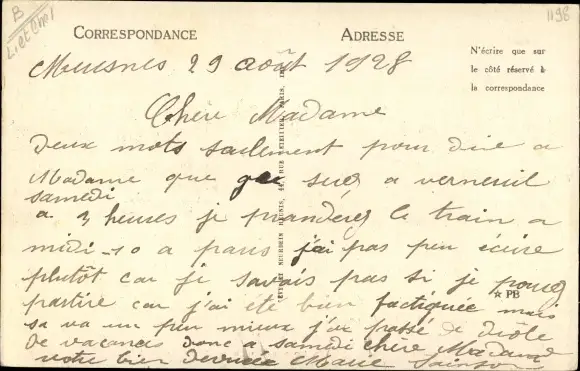 B
L. et Cher
1198
CORRESPONDANCE
ADRESSE
N'écrire que sur
le côté réservé à
la correspondance
Meusnes 29 août 1928
Chère Madame
deux mots saulement pour dire a
Madame que je sure a verneuil
samedi
a 3 heures je pranderez le train a
midi-10 a paris j'ai pas peu écrire
plutôt car je savais pas si je pourez
partire car j'ai été bien factiquée mais
sa va un peu mieux j'ai passé de drôle
de vacances donc a samedi chère Madame
votre bien dévouée Marie
★ PB